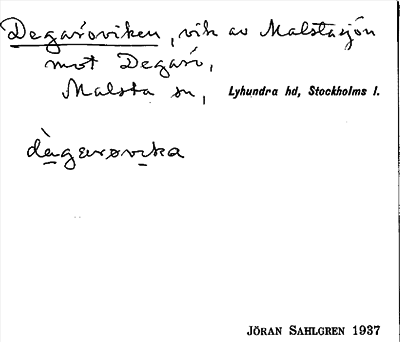 Degaröviken, vik av Malstasjön
mot Degarö,
Malsta sn, Lyhundra hd, Stockholms l.
dègarøvika
JÖRAN SAHLGREN 1937